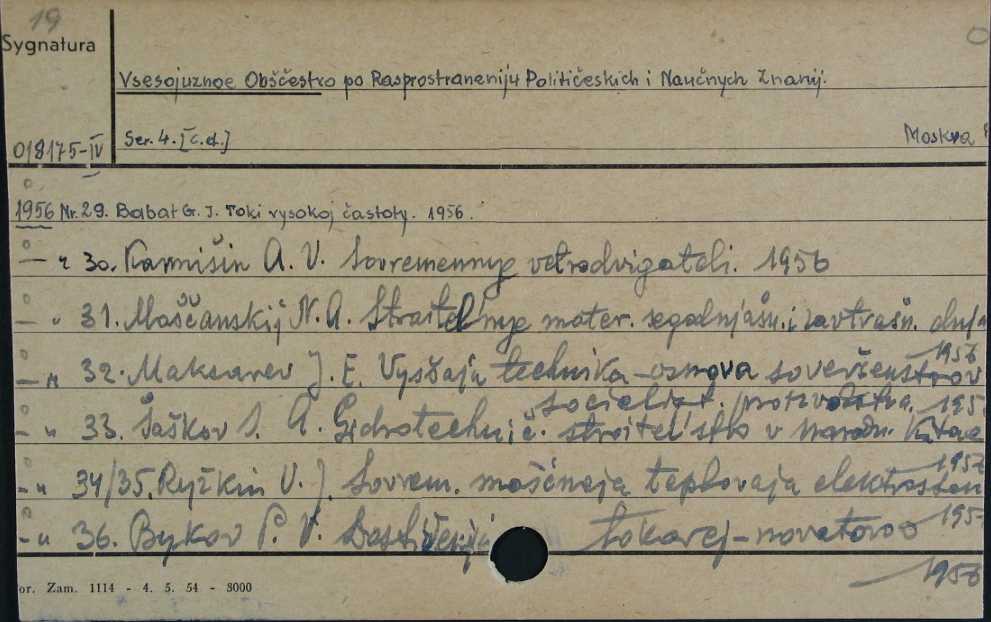 19
Sygnatura
Vsesojuznoe Obščestvo po Rasprostraneniju Političeskich i Naučnych Znanij.
018175-IV
Ser. 4. [c.d.]
Moskva
1956 Nr. 29. Babat G. J. Toki vysokoj častoty. 1956.
— " 30. Karmišin A. V. Sovremennye vetrodvigateli. 1956
— " 31. Moščanskij N. A. Stroitel'nye mater. segodnjašn. i zavtrašn. dnja
1956
— " 32. Maksarev J. E. Vysšaja technika – osnova soveršenstvov
socialist. proizvodstva. 195
— " 33. Šaškov S. A. Gidrotechnič. stroitel'stvo v narodn. Kitae
1956
— " 34/35. Ryžkin V. J. Sovrem. moščnaja teplovaja elektrostan
195
— " 36. Bykov P. V. Dostiženija tokarej-novatorov
1956
or. Zam. 1114 - 4. 5. 54 - 3000